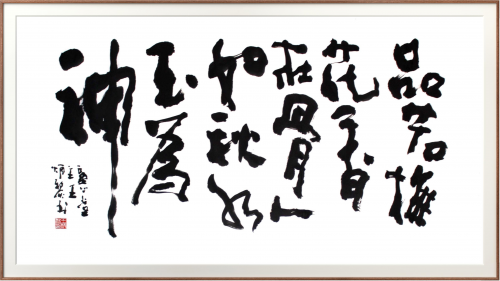 品若梅
花香
在骨人
如秋水
玉為
神